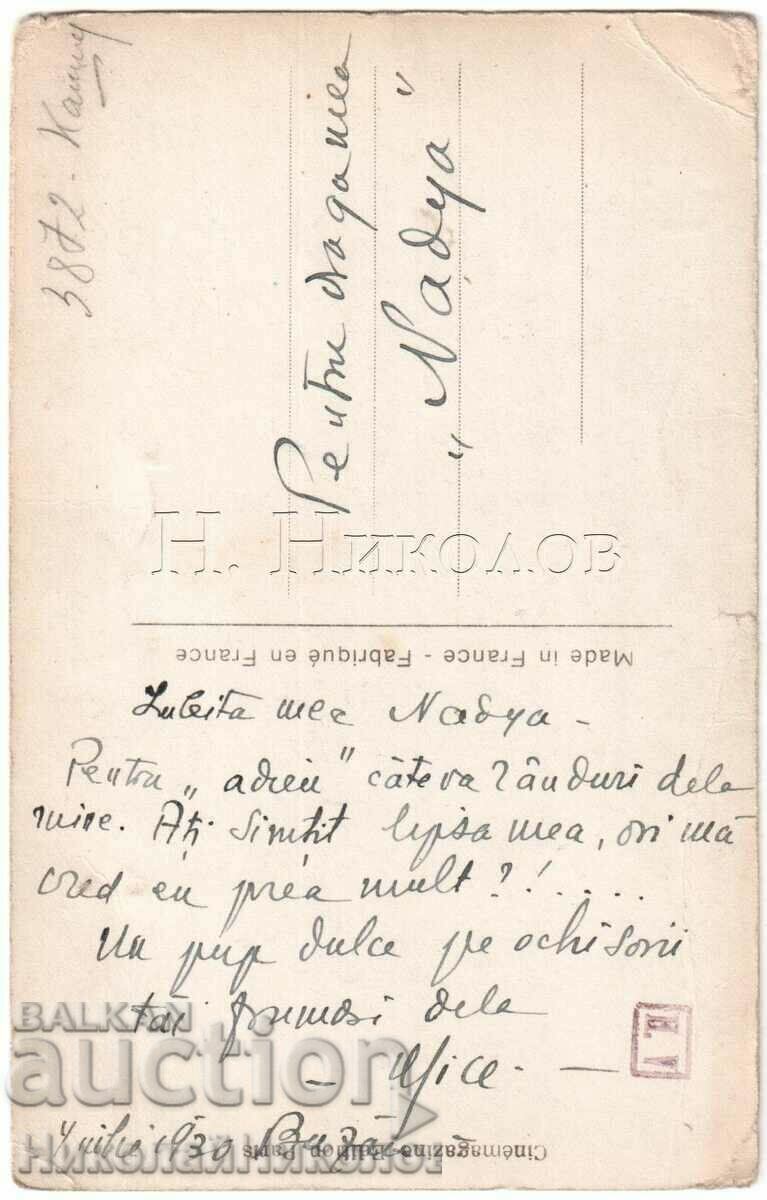 3872 -
Pentru draga mea
„Nadya"
Н. Николов
Made in France - Fabriqué en France
Iubita mea Nadya -
Pentru „adieu" câteva rânduri dela
mine. Ați simțit lipsa mea, ori mă
cred eu prea mult?!....
Un pup dulce pe ochisorii
tăi frumosi dela
- Mice. -
4 iulie 1930 Buzău
Cinémagazine-Edition, Paris
BALKAN
auction
Николай Николов